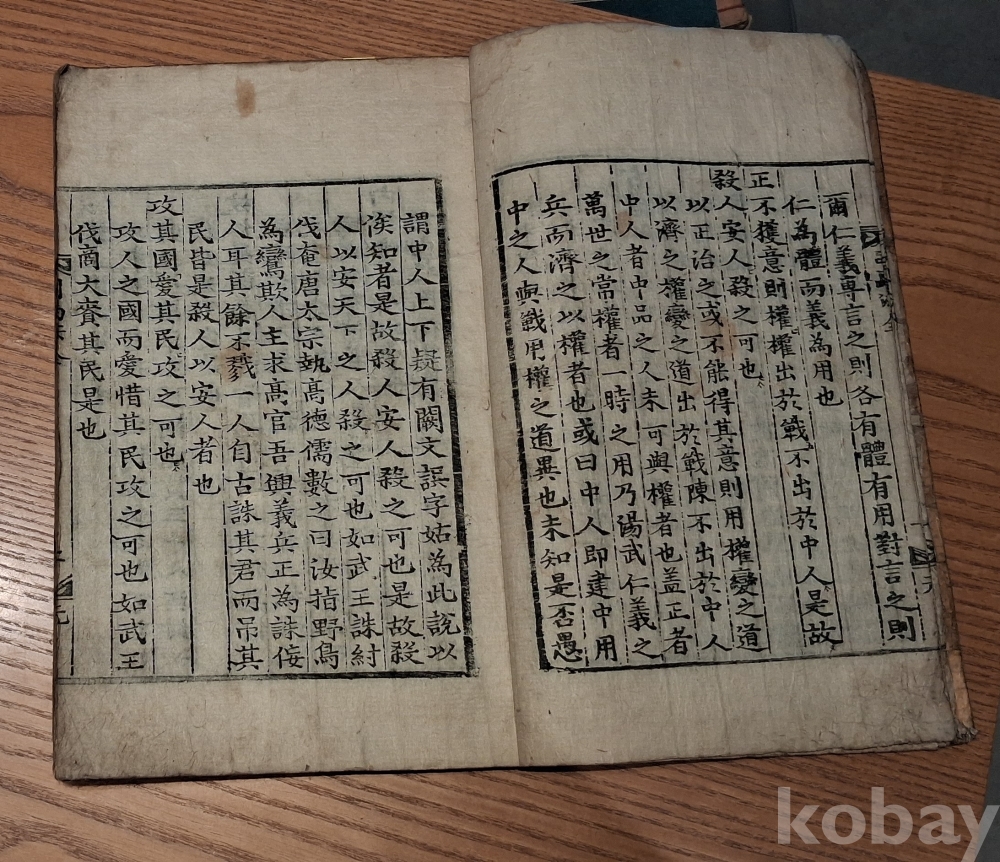 爾仁義專言之則各有體有用對言之則
仁為體而義為用也
正不獲意則權權出於戰不出於中人是故
殺人安人殺之可也
以正治之或不能得其意則用權變之道
以濟之權變之道出於戰陳不出於中人
中人者中品之人未可與權者也盖正者
萬世之常權者一時之用乃湯武仁義之
兵而濟之以權者也或曰中人即建中用
中之人與戰用權之道異也未知是否愚
謂中人上下疑有闕文誤字姑為此說以
俟知者是故殺人安人殺之可也是故殺
人以安天下之人殺之可也如武王誅紂
伐奄唐太宗執高德儒數之曰汝指野鳥
為鸞欺人主求高官吾興義兵正為誅侫
人耳其餘不戮一人自古誅其君而吊其
民皆是殺人以安人者也
攻其國愛其民攻之可也
攻人之國而愛惜其民攻之可也如武王
伐商大賚其民是也
kobay